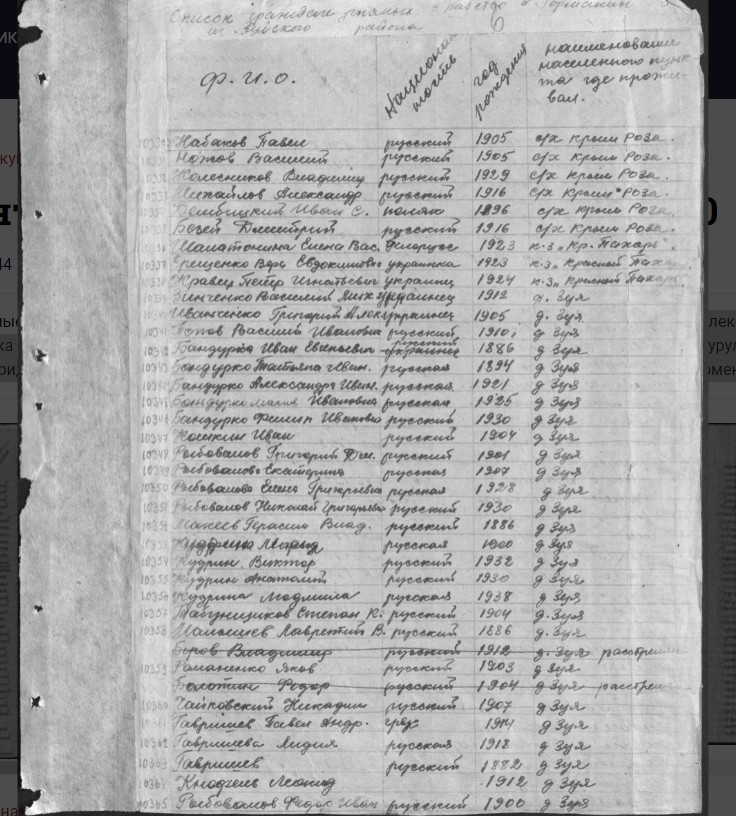 Список граждан угнаных в рабство в Германию
из Зуйского района
6
Ф.И.О.
Национальность
год рождения
наименование
населенного пунк-
та где прожи-
вал.
Набоков Павел русский 1905 с/х Крым Роза.
Ножов Василий русский 1905 с/х Крым Роза.
Колесников Владимир русский 1929 с/х Крым Роза.
Михайлов Александр русский 1916 с/х Крым Роза.
Иван С. поляк 1896 с/х Крым Роза
Дмитрий русский 1916 с/х Крым Роза.
Елена Вас. белорусс 1923 к-з „Кр. Пахарь".
Ерещенко Вера Евдокимовна украинка 1923 к-з „Красный
10338 Кравец Петр Игнатьевич украинец 1924 к-з „Красный Пахарь
Зинченко Василий украинец 1912 д. Зуя
Иванченко Григорий украинец 1905 д. Зуя
10341 Попов Василий Иванович русский 1910 д Зуя
русский
10342 Бандурко Иван Евгеньевич украинец 1886 д Зуя
10343 Бандурко Татьяна Иван. русская 1894 д Зуя
10344 Бандурко Александра Иван. русская 1921 д Зуя
10345 Бандурко Мария Ивановна русская 1925 д Зуя
10346 Бандурко Филип Иванович русский 1930 д Зуя
10347 Кошкин Иван русский 1904 д Зуя
10348 Рыбовалов Григорий русский 1901 д Зуя
10349 Рыбовалова Екатерина русская 1907 д Зуя
10350 Рыбовалова Елена Григорьевна русская 1928 д Зуя
10351 Рыбовалов Николай Григорьевич русский 1930 д Зуя
10352 Макеев Герасим Влад. русский 1886 д Зуя
10353 русская 1900 д Зуя
10354 Кудрин Виктор русский 1932 д Зуя
10355 Кудрин Анатолий русский 1930 д Зуя
10356 Кудрина Людмила русская 1938 д Зуя
10357 Табунщиков Степан К. русский 1904 д. Зуя
10358 Малышев Лаврентий В. русский 1886 д. Зуя
Владимир русский 1912 д. Зуя
10359 Романенко Яков русский 1903 д Зуя
Болотин Федор русский 1904 д Зуя
10360 Чайковский Никадим русский 1907 д Зуя
10361 Гавришев Павел Андр. грек 1914 д Зуя
10362 Гавришева Лидия русская 1918 д Зуя
10363 Гавришев русский 1882 д Зуя
10364 Леонид 1912 д Зуя
10365 Рыбовалов Федор Иван русский 1900 д Зуя